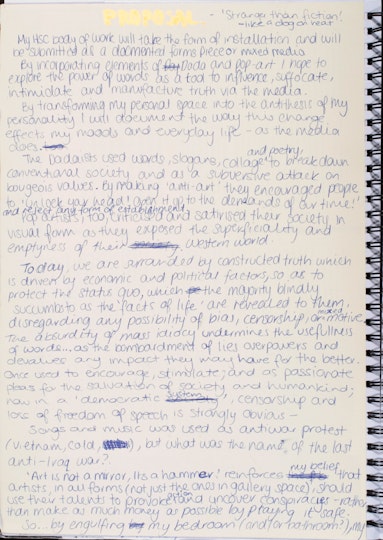 PROPOSAL - 'Strange than fiction'
- like a dog on heat
My HSC body of work will take the form of installation and will
be submitted as a documented forms piece or mixed media
By incorporating elements of Dada and pop-art I hope to
explore the power of words as a tool to influence, suffocate,
intimidate and manufacture truth via the media.
By transforming my personal space into the antithesis of my
personality I will document the way this change
effects my moods and everyday life - as the media
does.
The Dadaists used words, slogans, collage and poetry, to break down
conventional society and as a subversive attack on
bourgeois values. By making 'anti-art' they encouraged people
to 'unlock your head! open it up to the demands of our time!'
and reject any form of establishment
Pop artists too, criticised and satirised their society in
visual form as they exposed the superficiality and
emptyness of their western world.
Today, we are surrounded by constructed truth which
is driven by economic and political factors, so as to
protect the status quo, which the majority blindly
succumbs to as the 'facts of life' are revealed to them,
disregarding any possibility of bias, censorship, or motive.
The absurdity of mass idiocy undermines the usefullness
of words... as the bombardment of lies overpowers and
devalues any impact they may have for the better.
Once used to encourage, stimulate; and as passionate
pleas for the salvation of society and humankind;
now in a 'democratic system', censorship and
loss of freedom of speech is strongly obvious -
Songs and music was used as antiwar protest
(Vietnam, Cold, ), but what was the name, of the last
anti-Iraq war?
'Art is not a mirror, its a hammer!' reinforces my belief that
artists, in all forms (not just the ones in gallery space), should
use their talents to provoke and uncover conspiracies - rather
than make as much money as possible by playing it safe.
So... by engulfing my bedroom (and/or bathroom?), my